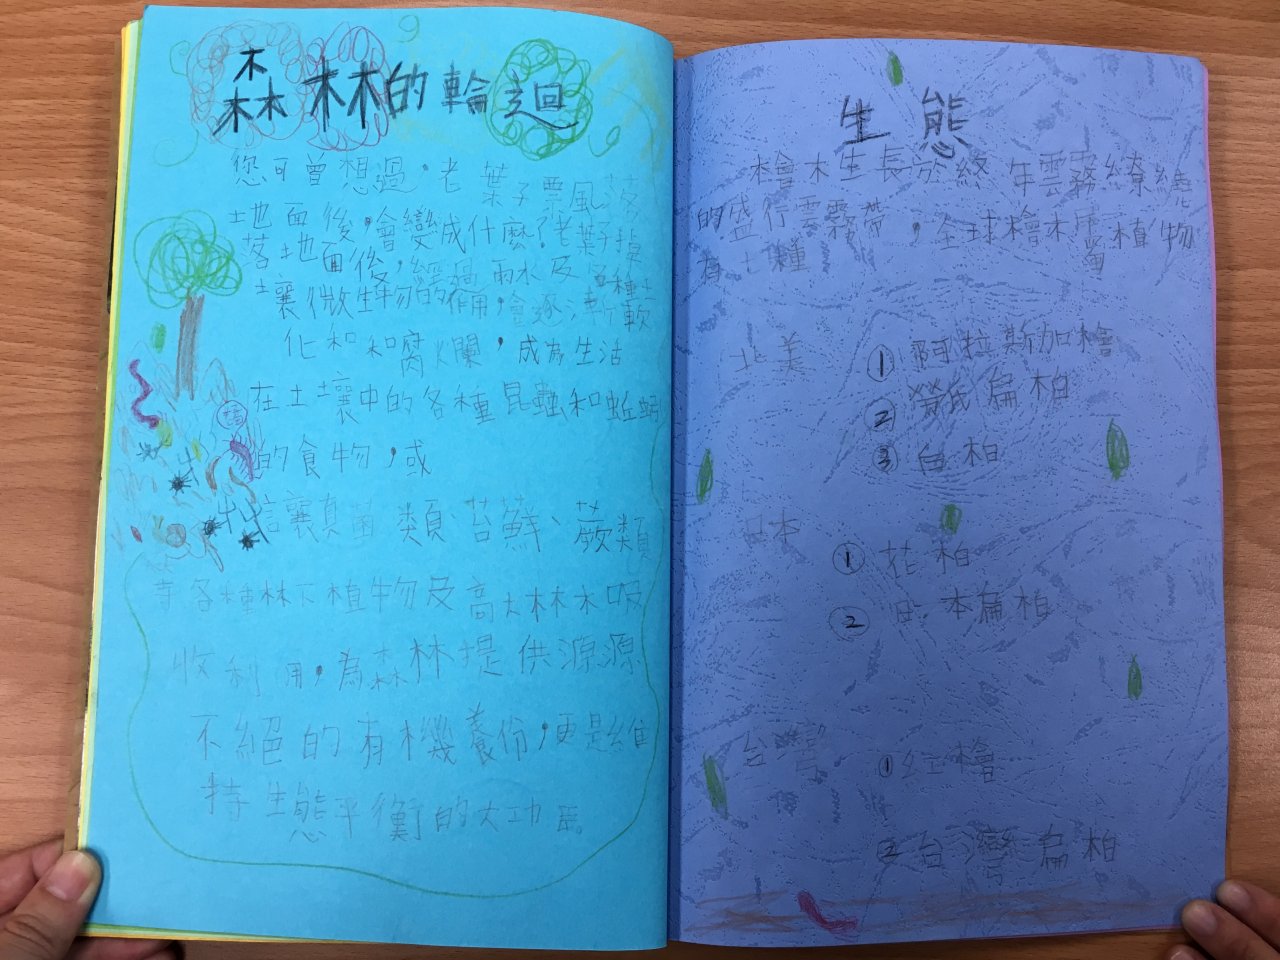 森林的輪迴
您可曾想過,老葉子票風落
地面後,會變成什麼?老葉子掉
落地面後,經過雨水及各種土
壤微生物的作用,會逐漸軟
化和和腐爛,成為生活
在土壤中的各種昆蟲和蚯蚓
的食物,或
讓真菌類、苔鮮、蕨類
等各種林下植物及高大林木吸
收利用,為森林提供源源
不絕的有機養份,更是維
持生態平衡的大功臣。
生態
檜木生長於終年雲霧繚繞
的盛行雲霧帶,全球檜木屬植物
有七種
北美 ①阿拉斯加檜
②勞氏扁柏
③白柏
日本
①花柏
②日本扁柏
台灣 ①紅檜
②台灣扁柏